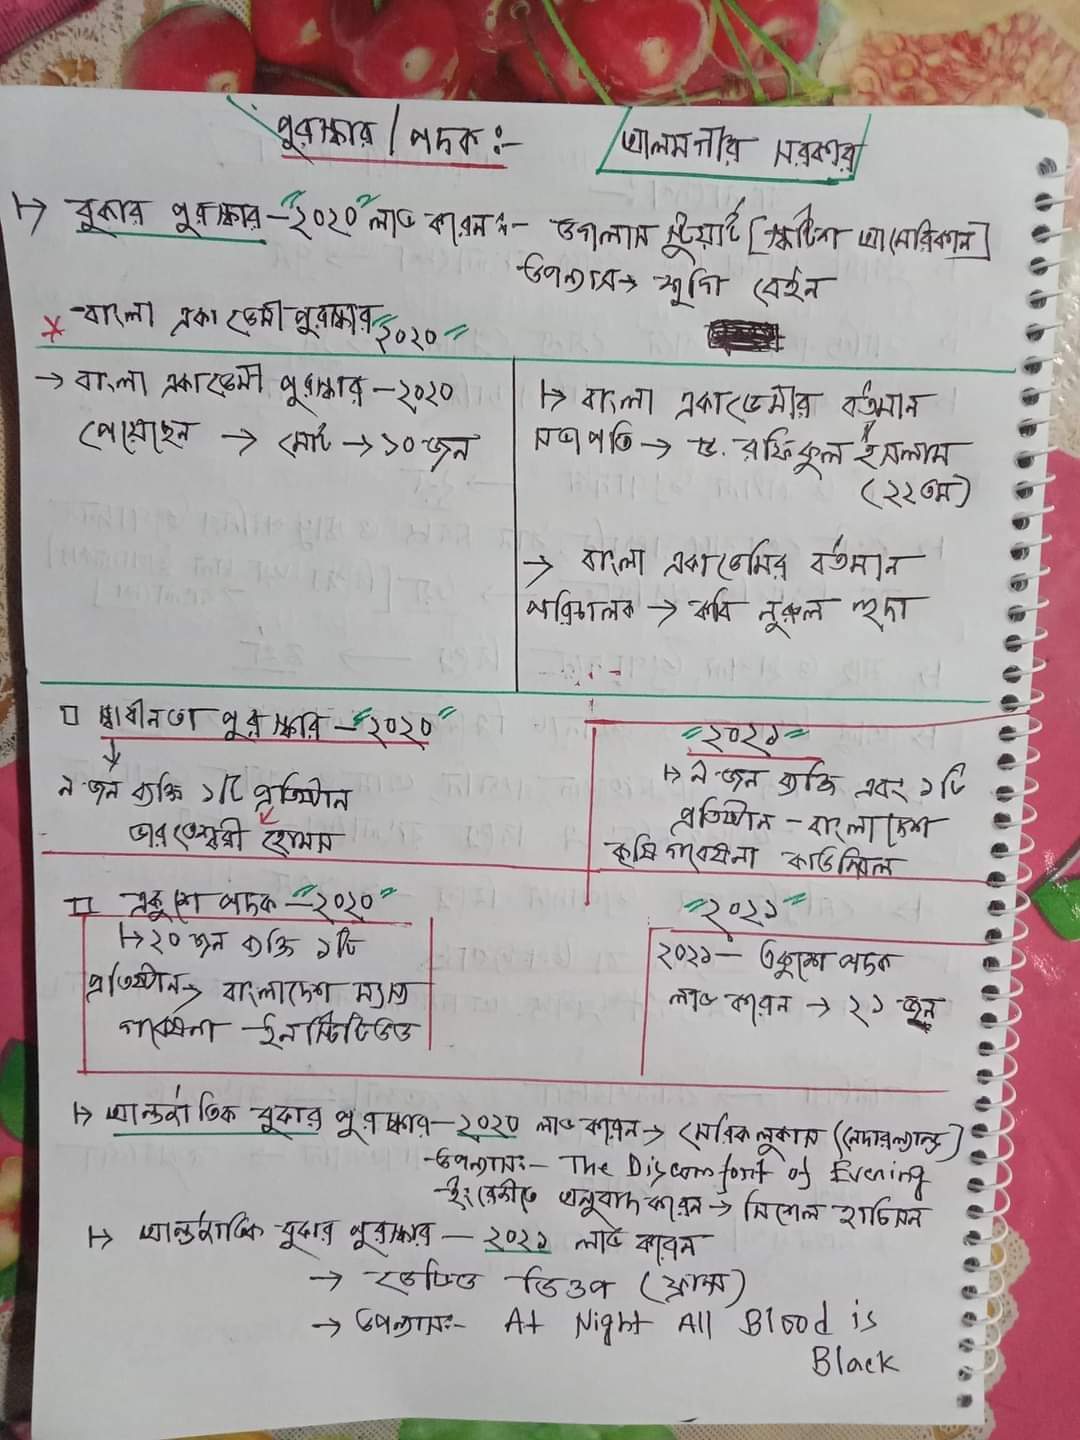 পুরস্কার / পদক :-
আলমগীর সরকার
বুকার পুরস্কার - "২০২০" লাভ করেন :- ডগলাস স্টুয়ার্ট [স্কটিশ আমেরিকান]
উপন্যাস → শুগি বেইন
বাংলা একাডেমী পুরস্কার "২০২০"
→ বাংলা একাডেমী পুরস্কার - ২০২০
পেয়েছেন → মোট → ১০ জন
বাংলা একাডেমীর বর্তমান
সভাপতি → ড. রফিকুল ইসলাম
(২২তম)
→ বাংলা একাডেমির বর্তমান
পরিচালক → কবি নুরুল হুদা
স্বাধীনতা পুরস্কার - "২০২০"
৯ জন ব্যক্তি ১টি প্রতিষ্ঠান
ভারতেশ্বরী হোমস
"২০২১"
৯ জন ব্যক্তি এবং ১টি
প্রতিষ্ঠান - বাংলাদেশ
কৃষি গবেষনা কাউন্সিল
একুশে পদক - "২০২০"
২০ জন ব্যক্তি ১টি
প্রতিষ্ঠান → বাংলাদেশ মৎস্য
গবেষনা - ইনস্টিটিউট
"২০২১"
২০২১ - একুশে পদক
লাভ করেন → ২১ জন
আন্তর্জাতিক বুকার পুরস্কার - ২০২০ লাভ করেন → মেরিক লুকাস (নেদারল্যান্ড)
উপন্যাস :- The Discomfort of Evening
ইংরেজীতে অনুবাদ করেন → মিশেল হাচিসন
আন্তর্জাতিক বুকার পুরস্কার - ২০২১ লাভ করেন
→ ডেভিড ডিওপ (ফ্রান্স)
→ উপন্যাস :- At Night All Blood is
Black